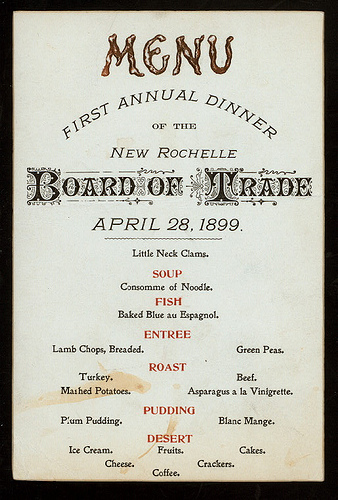 MENU
FIRST ANNUAL DINNER
OF THE
NEW ROCHELLE
BOARD OF TRADE
APRIL 28, 1899.
Little Neck Clams.
SOUP
Consomme of Noodle.
FISH
Baked Blue au Espagnol.
ENTREE
Lamb Chops, Breaded. Green Peas.
ROAST
Turkey. Beef.
Mashed Potatoes. Asparagus a la Vinigrette.
PUDDING
Plum Pudding. Blanc Mange.
DESERT
Ice Cream. Fruits. Cakes.
Cheese. Crackers.
Coffee.